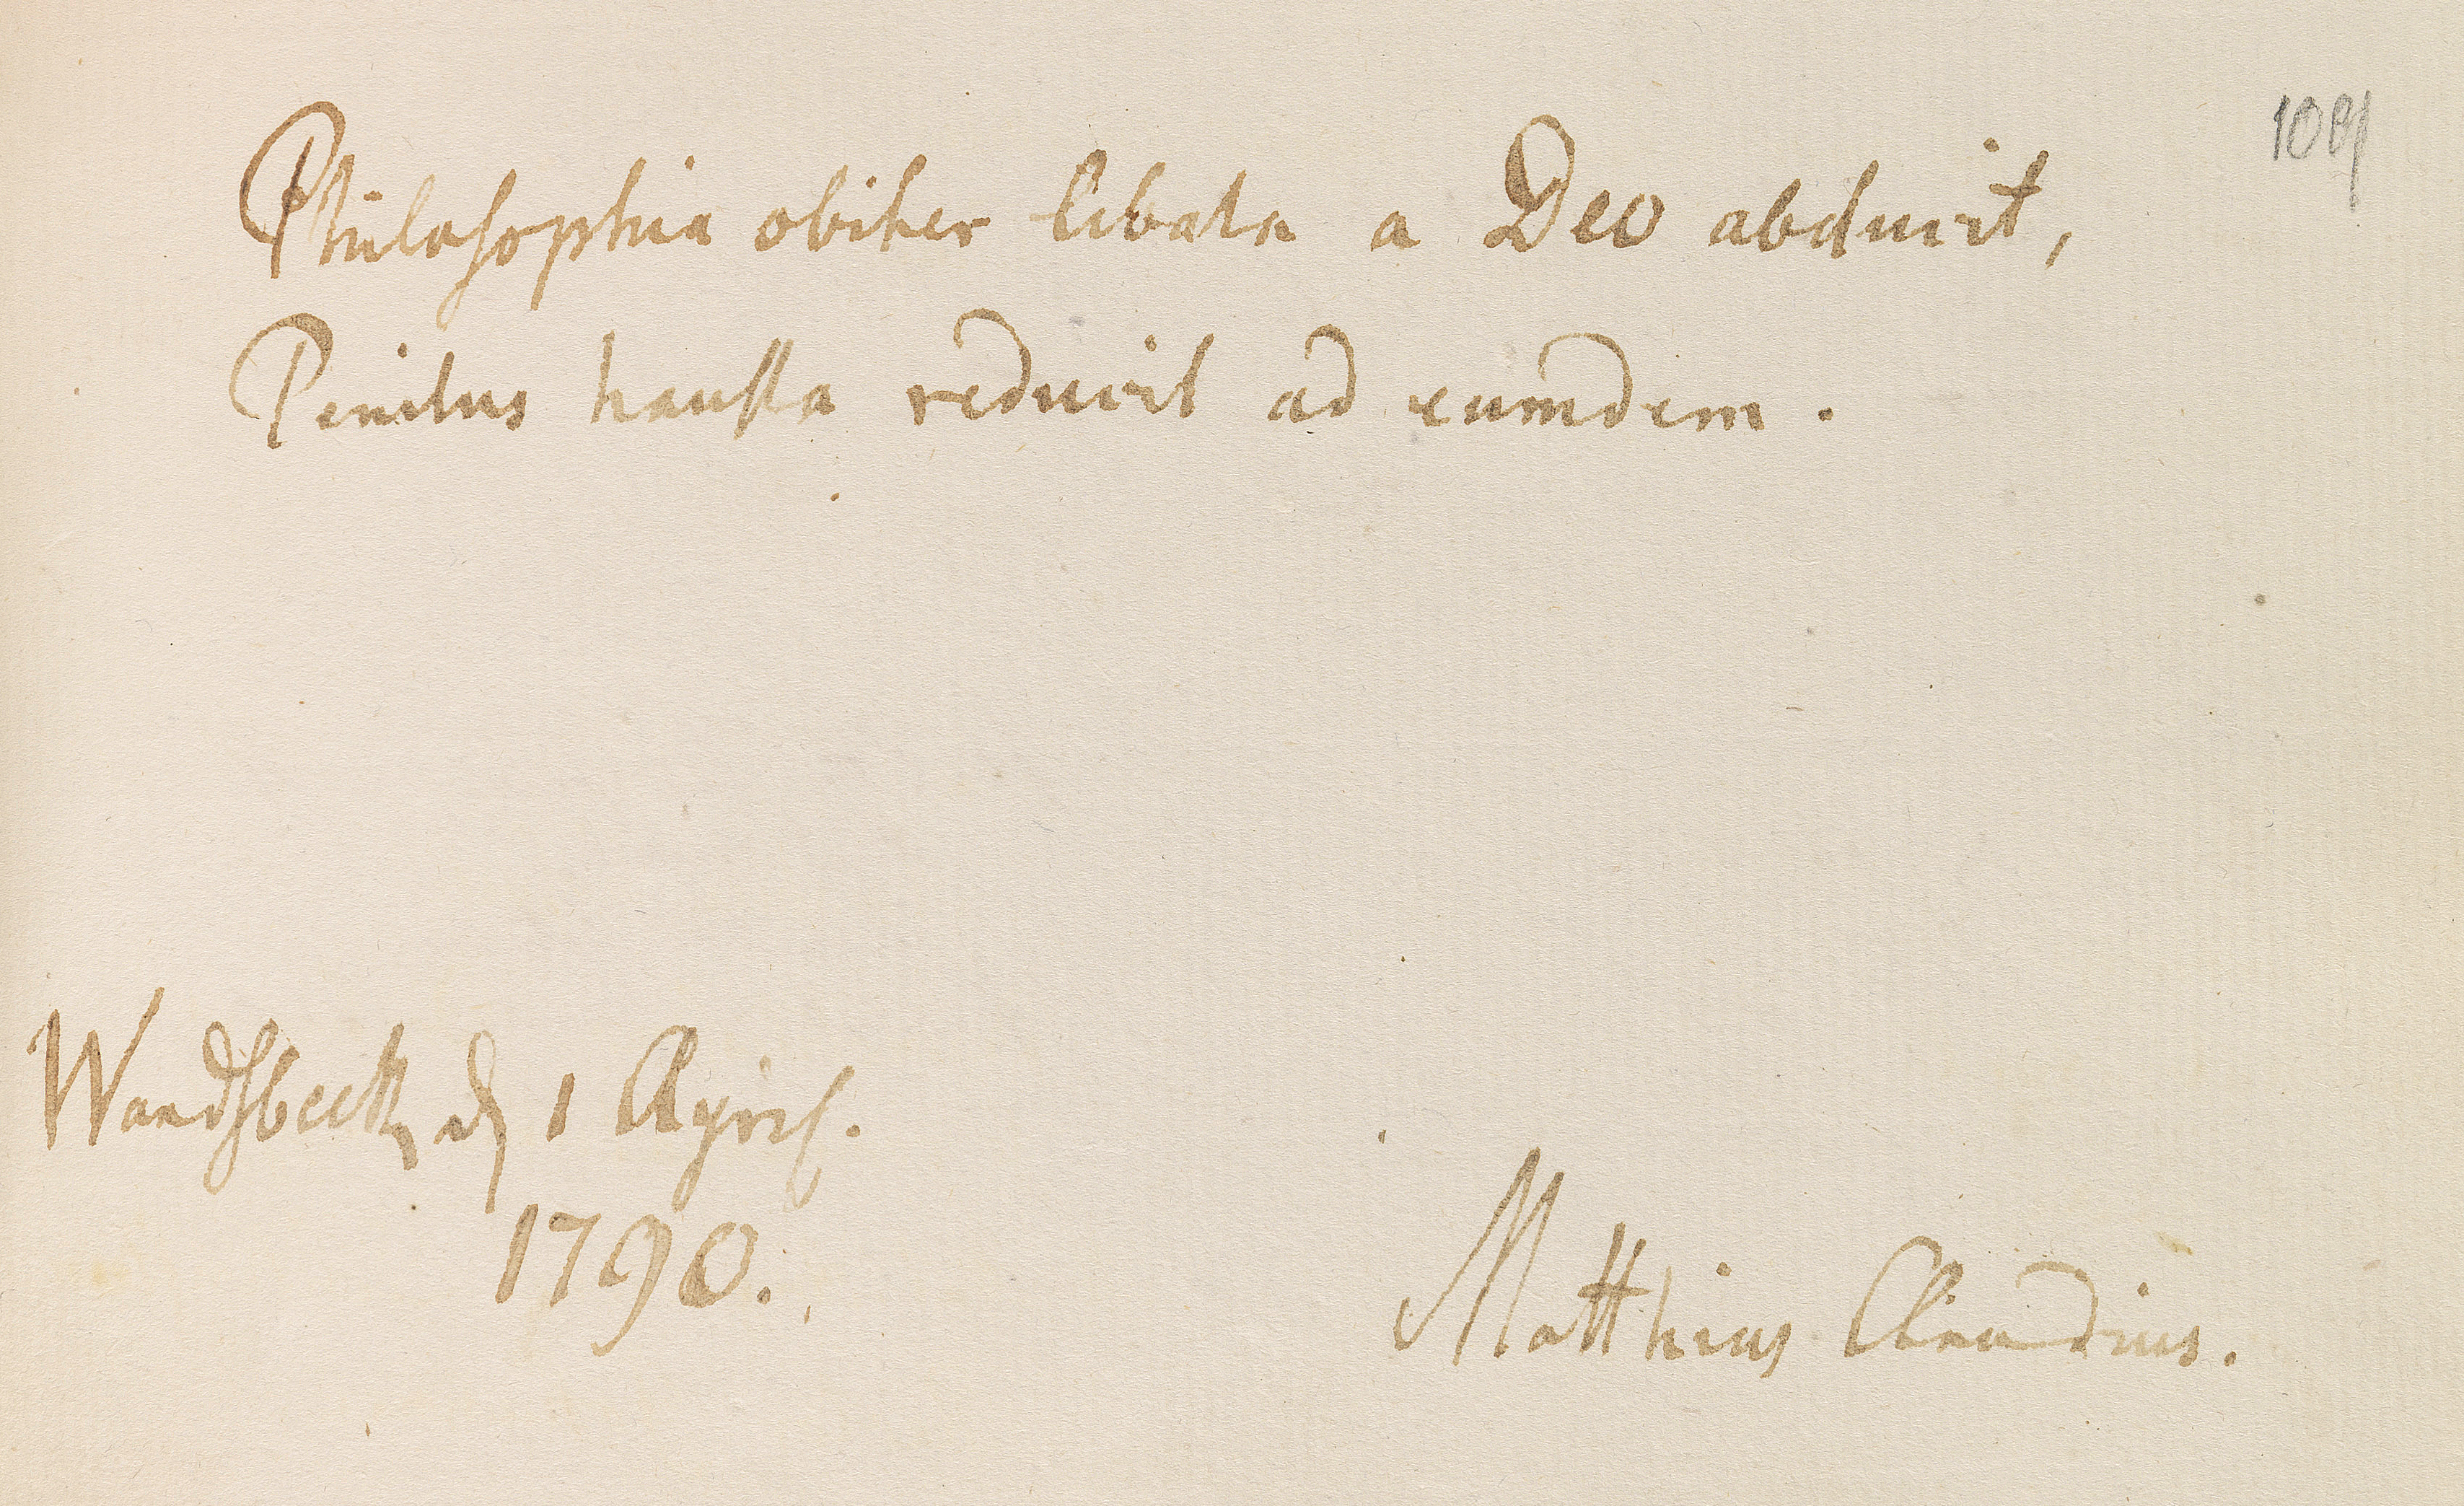 Philosophia obiter libata a Deo abducit,
Penitus hausta reducit ad eumdem.
Wandsbeck, d 1 April.
1790.
Matthias Claudius.